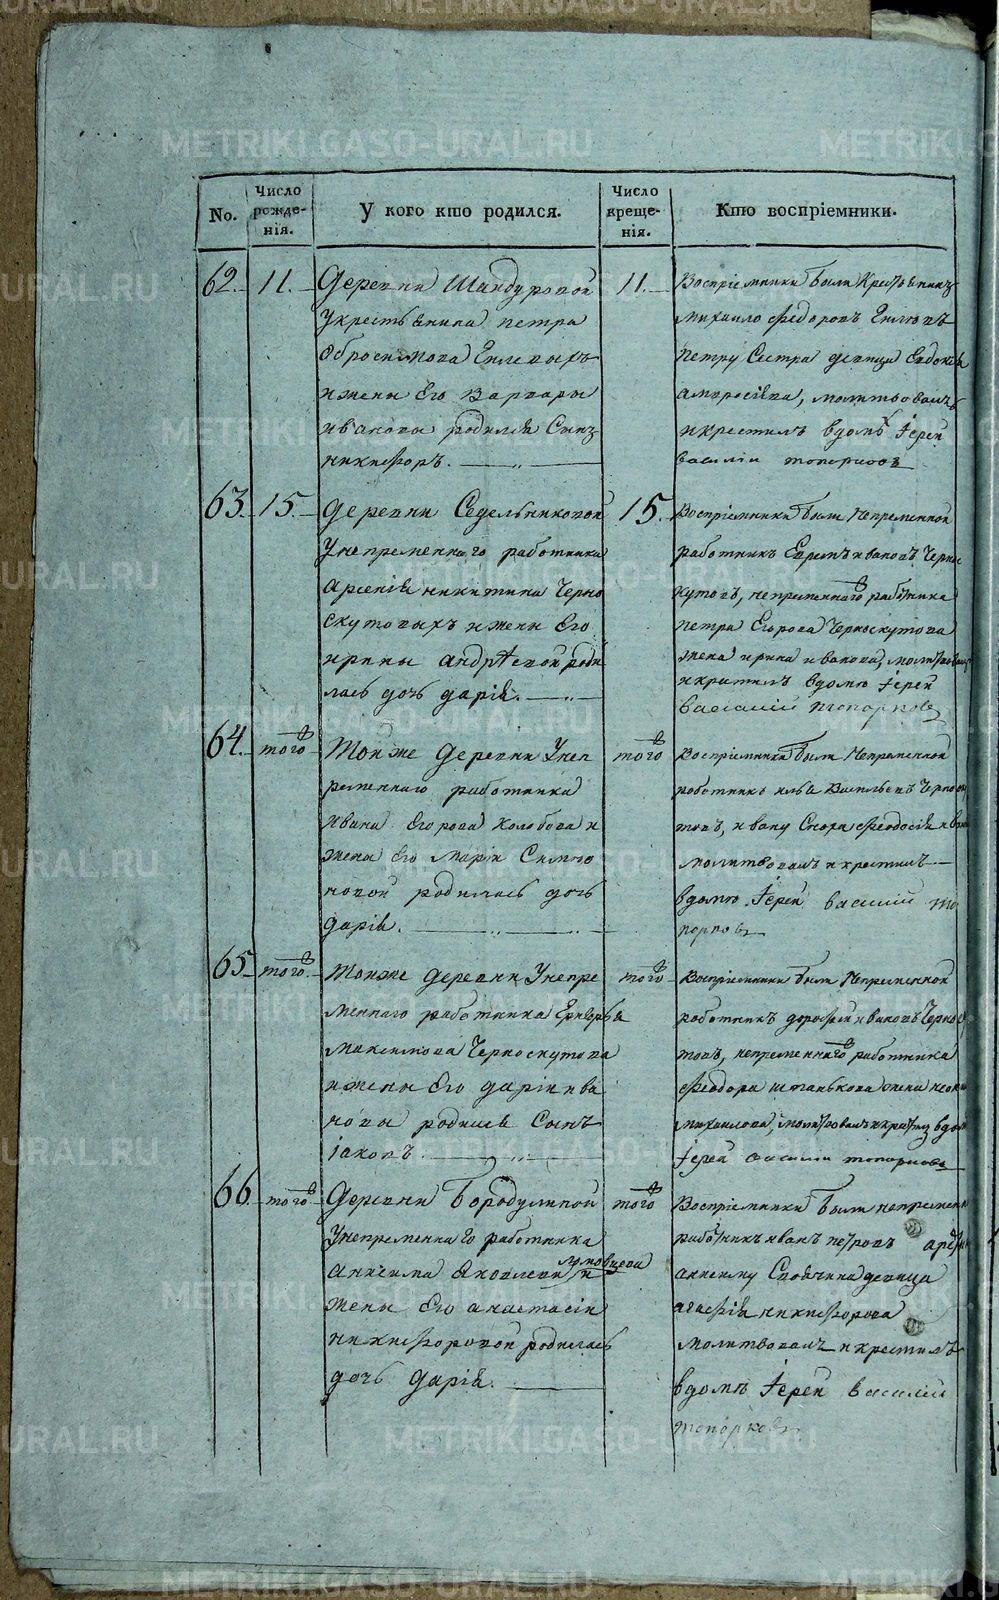 No.
Число рожде-нія.
У кого кто родился.
Число креще-нія.
Кто воспріемники.
62. 11.
Деревни Шандуровой
укрестьянина петра
Обросимова Гилевыхъ
ижены Его Варвары
ивановы родился Сынъ
никифоръ.
11.
Воспріемники были Крестьянинъ
михайло Федоровъ Гилевъ
петру Сестра девица Евдокія
амвросіева, молитвовалъ
икрестилъ вдомѣ Іерей
василіи топорковъ
63. 15.
деревни Седельниковой
Унепременнаго работника
Арсенія никитина Черно
скутовыхъ ижены Его
ирины андрѣевой роди
лась дочь дарія.
15.
Воспріемники были Непременной
работникъ Ефремъ ивановъ Чернос
кутовъ, непременнаго работника
петра Егорова Черноскутова
жена ирина иванова, молитвовалъ
икрестилъ вдомѣ Іерей
василий топорковъ
64. того
Тойже деревни Унеп
ременнаго работника
ивана Егорова Колобова и
жены Его маріи Симео
новой родилась дочь
дарія.
того
Воспріемники были Непременной
работникъ илья Васильевъ Черноску
товъ, ивану Сноха Феодосія
молитвовалъ икрестилъ
вдомѣ Іерей василий то
порковъ
65. того.
Тойже деревни Унепре
меннаго работника
максимова Черноскутова
ижены Его даріи ива
новы родился Сынъ
іаковъ.
того
Воспріемники были Непременной
работникъ дорофей ивановъ Черноску
товъ, непременнаго работника
Феодора штанькова жена
михаилова, молитвовалъ икрестилъ вдомѣ
Іерей василіи топорковъ
66 того.
Деревни Бородулиной
Унепременнаго работника
анисима Яковлева
и
жены Его анастасіи
никифоровой родилась
дочь дарія.
того
Воспріемники были непременной
работникъ иванъ петровъ
анисиму Своячина девица
агафія никифорова
молитвовалъ икрестилъ
вдомѣ Іерей василий
топорковъ
METRIKI.GASO-URAL.RU